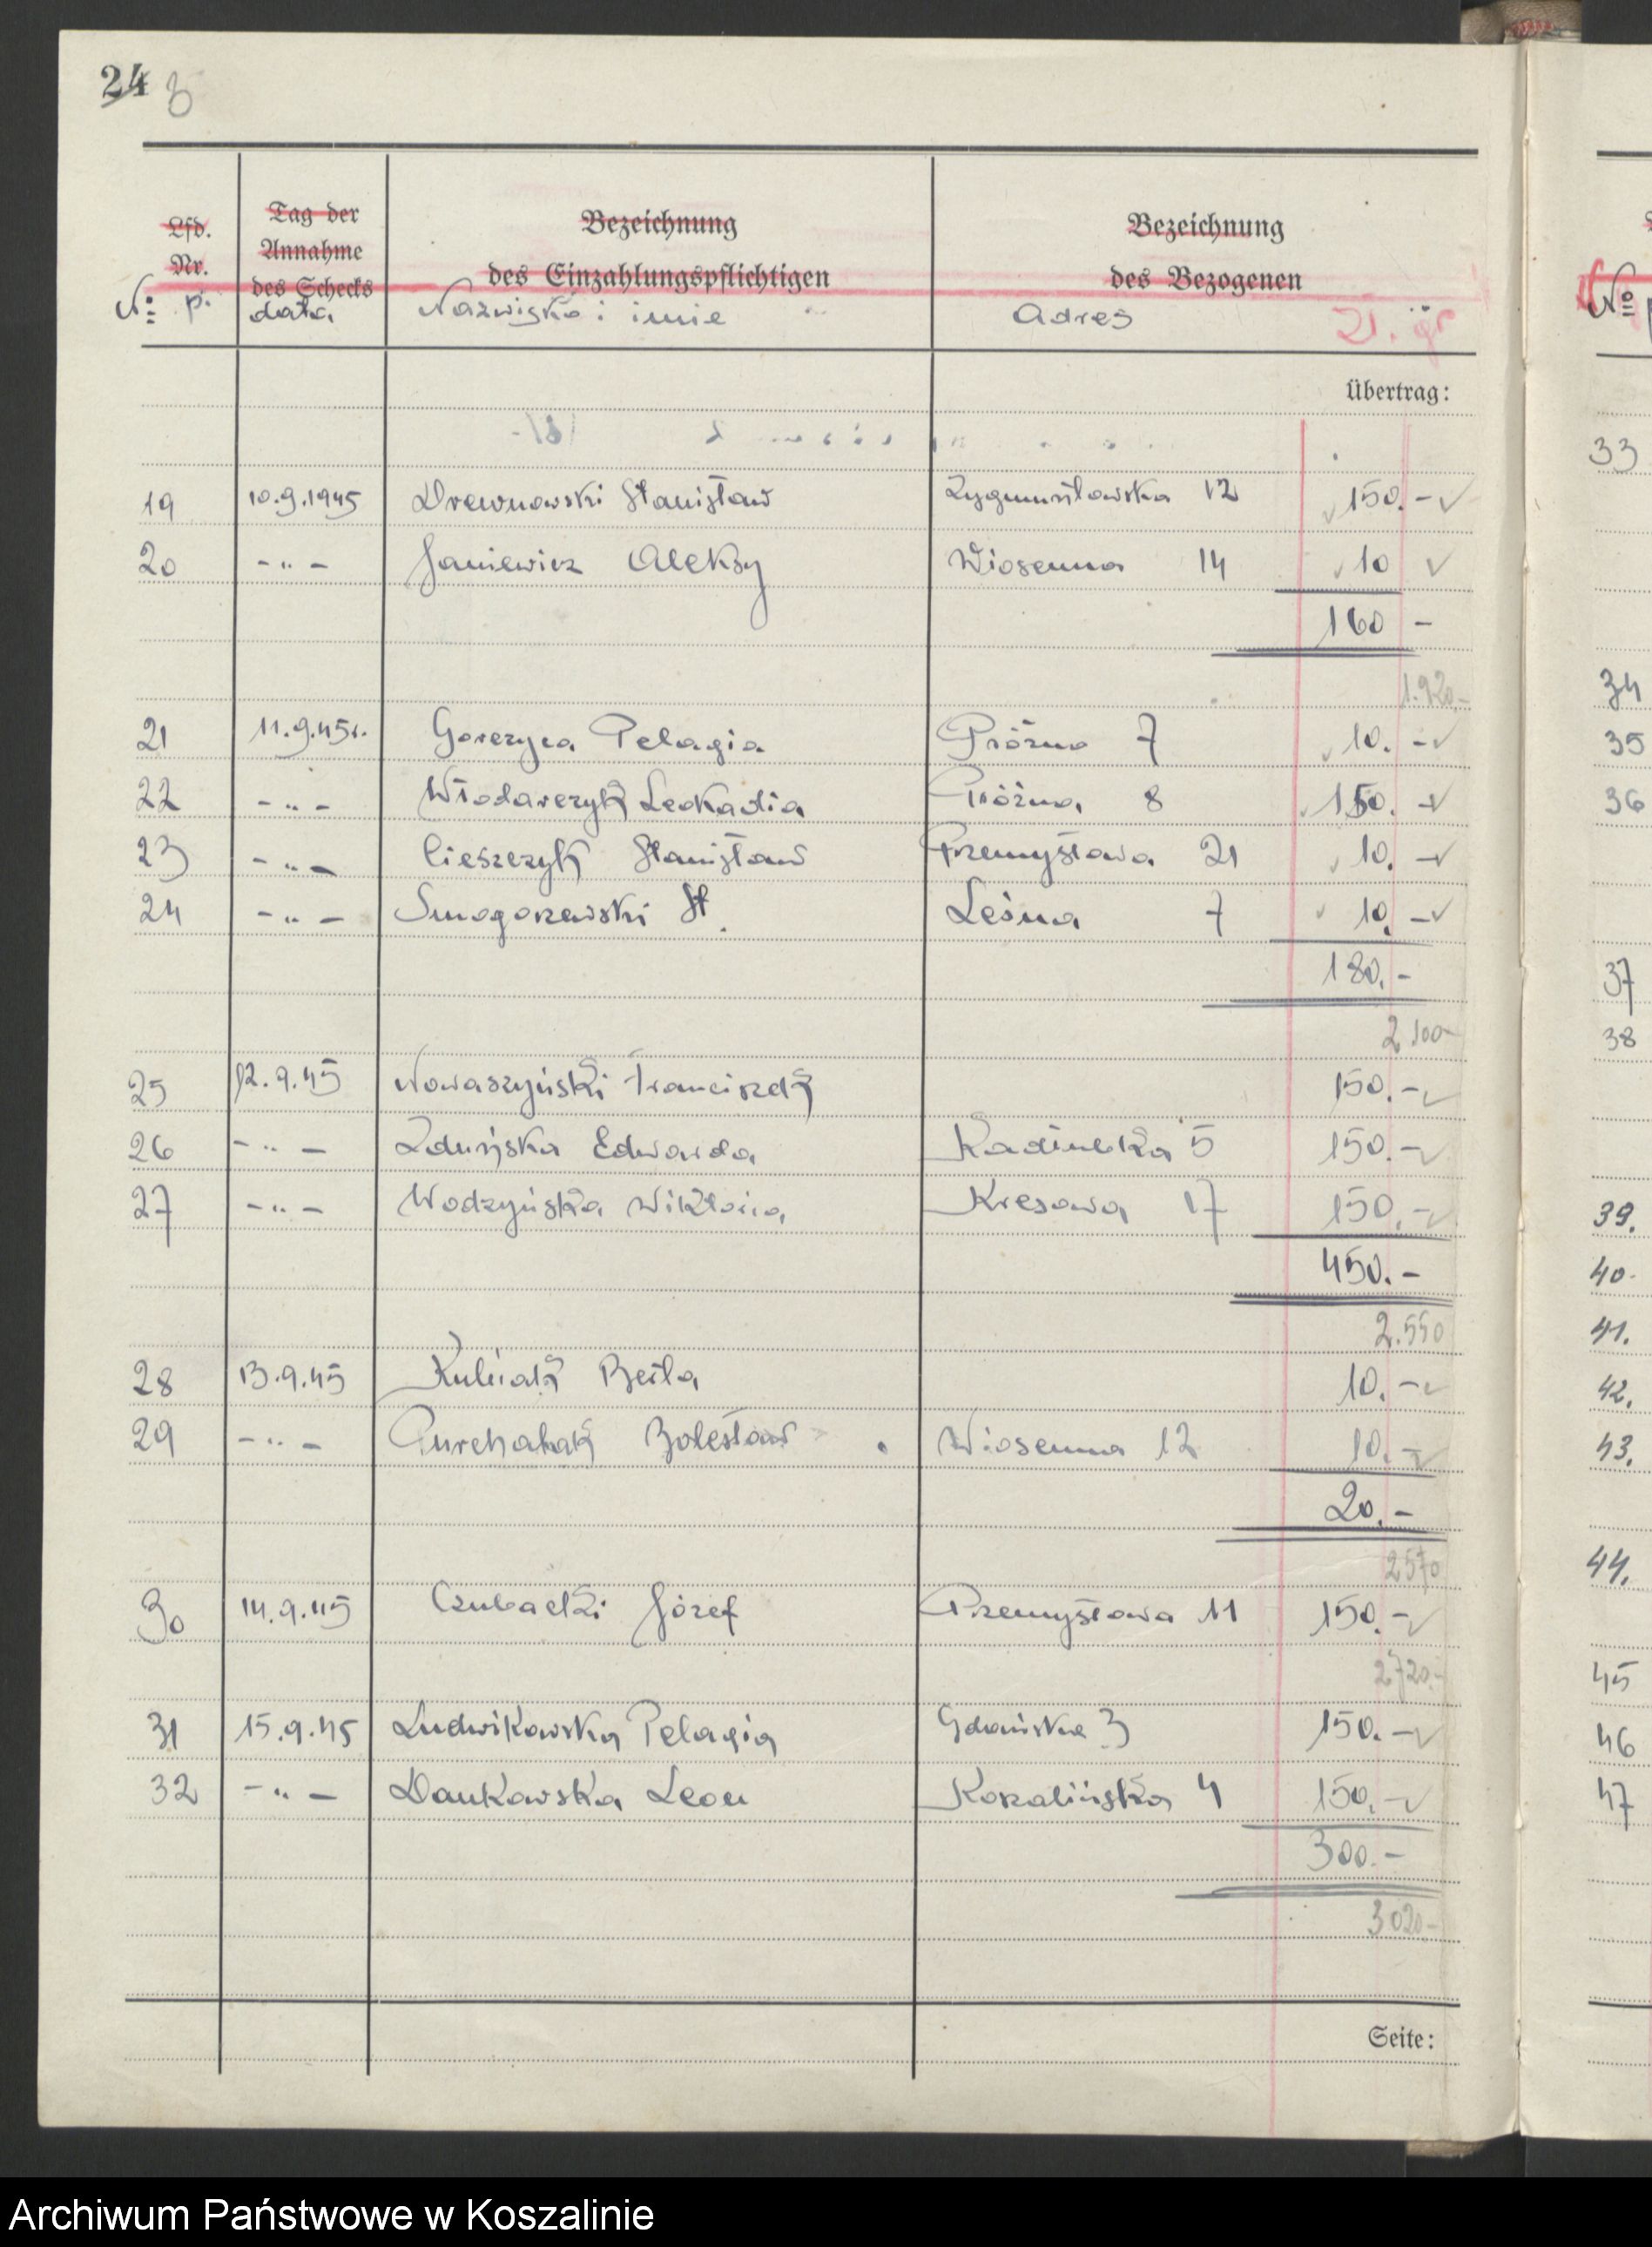 24 3
Lfd. Nr.
Tag der Annahme des Schecks
Bezeichnung des Einzahlungspflichtigen
Bezeichnung des Bezogenen
№ p. data Nazwisko i imię Adres Zł. gr
Übertrag:
19 10.9.1945 Drewnowski Stanisław Zygmuntowska 12 150.-
20 -"- Janiewicz Aleksy Wiosenna 14 10
160 -
1.920.-
21 11.9.45r. Gorczyca Pelagia Próżna 7 10.-
22 -"- Włodarczyk Leokadia Próżna 8 150.-
23 -"- Cieszczyk Stanisław Przemysłowa 21 10.-
24 -"- Smogorzewski St. Leśna 7 10.-
180.-
2 100-
25 12.9.45 Nowaszyński Franciszek 150.-
26 -"- Zduńska Edwarda 5 150.-
27 -"- Wodzyńska Wiktoria Kresowa 17 150.-
450.-
2.550
28 13.9.45 Kubiak Berta 10.-
29 -"- Bolesław Wiosenna 12 10.-
20.-
2570
30 14.9.45 Czubacki Józef Przemysłowa 11 150.-
2720.-
31 15.9.45 Ludwikowska Pelagia Gdańska 3 150.-
32 -"- Dankowska Leon Koszalińska 4 150.-
300.-
3 020-
Seite:
№
33
34
35
36
37
38
39.
40.
41.
42.
43.
44.
45
46
47
Archiwum Państwowe w Koszalinie